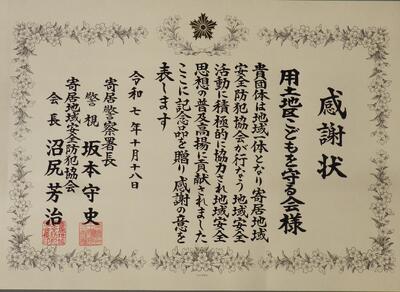 感謝状
用土地区こどもを守る会様
貴団体は地域一体となり寄居地域
安全防犯協会が行なう地域安全
活動に積極的に協力され地域安全
思想の普及高揚に貢献されました
ここに記念品を贈り感謝の意を
表します
令和七年十月十八日
寄居警察署長
警視 坂本守史
寄居地域安全防犯協会
会長 沼尻芳治